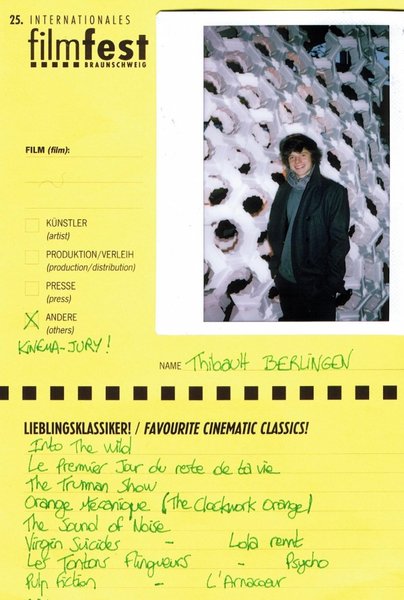 25. INTERNATIONALES
filmfest
BRAUNSCHWEIG
FILM (film):
KÜNSTLER
(artist)
PRODUKTION/VERLEIH
(production/distribution)
PRESSE
(press)
X ANDERE
(others)
KINEMA-JURY!
NAME Thibault BERLINGEN
LIEBLINGSKLASSIKER! / FAVOURITE CINEMATIC CLASSICS!
Into The Wild
Le Premier Jour du reste de ta vie
The Truman Show
Orange Mécanique (The Clockwork Orange)
The Sound of Noise
Virgin Suicides - Lola rennt
Les Tontons Flingueurs - Psycho
Pulp Fiction - L'Arnacoeur